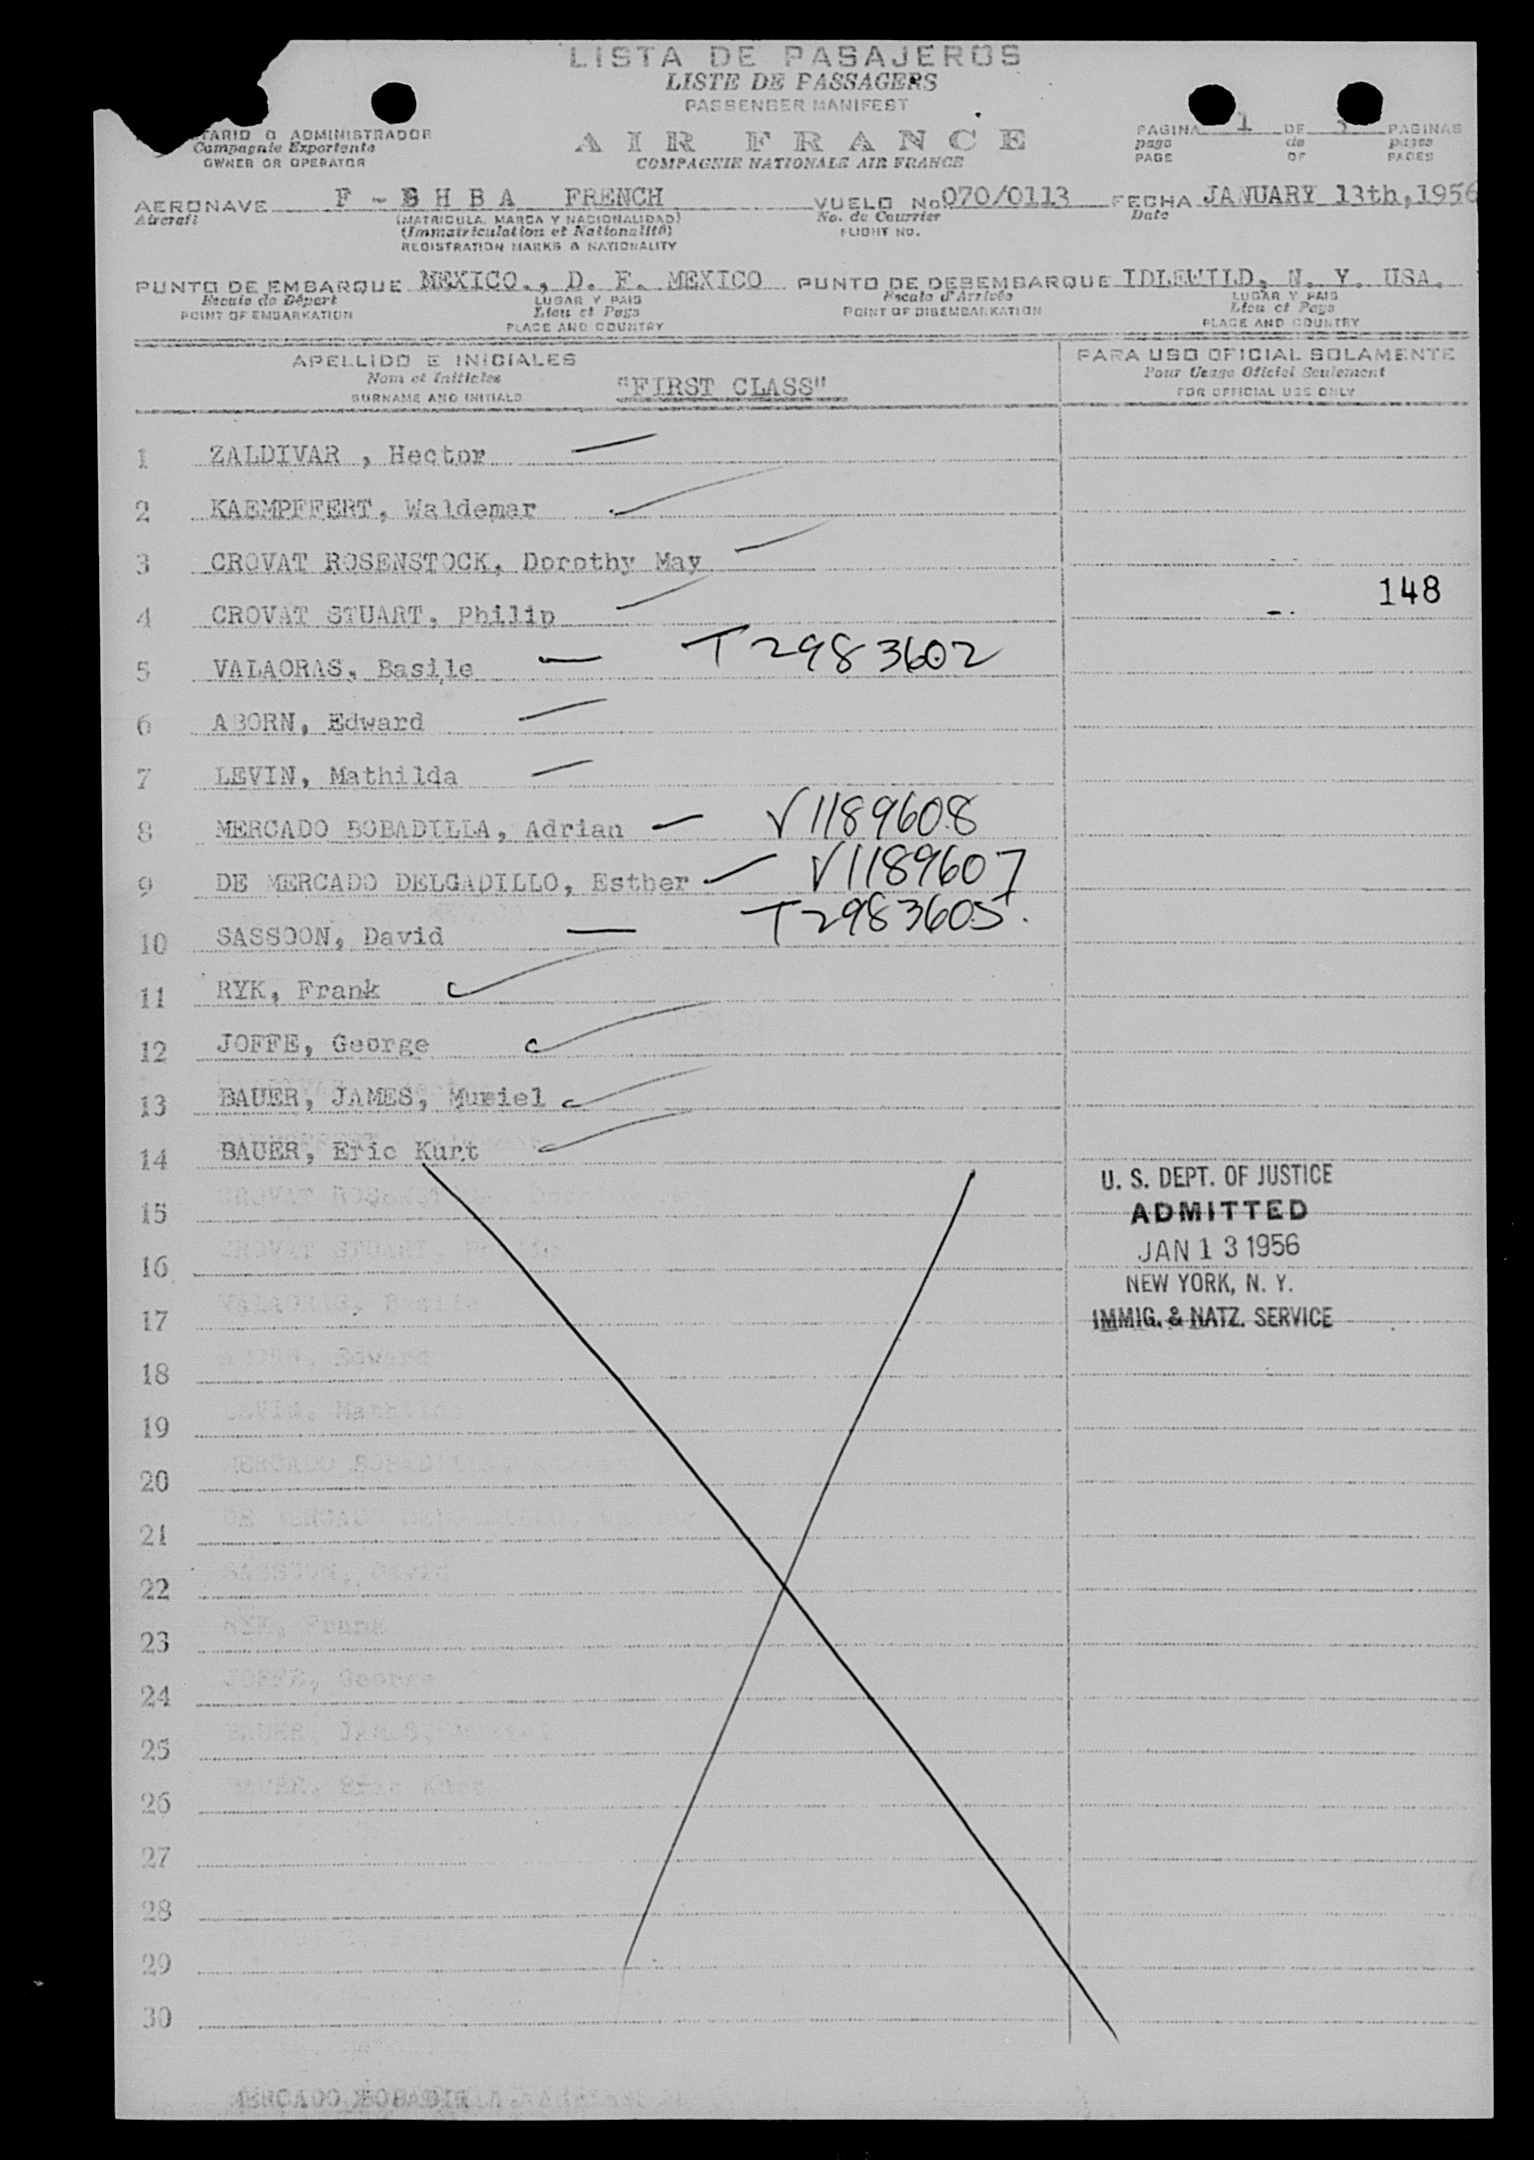 LISTA DE PASAJEROS
LISTE DE PASSAGERS
PASSENGER MANIFEST
TARIO O ADMINISTRADOR
Compagnie Exportante
OWNER OR OPERATOR
AIR FRANCE
COMPAGNIE NATIONALE AIR FRANCE
PAGINA 1 DE PAGINAS
page de pages
PAGE OF PAGES
AERONAVE F - B H B A FRENCH VUELO No 070/0113 FECHA JANUARY 13th, 1956
Aircraft (MATRICULA, MARCA Y NACIONALIDAD) No. de Courrier Date
(Immatriculation et Nationalité) FLIGHT NO.
REGISTRATION MARKS & NATIONALITY
PUNTO DE EMBARQUE MEXICO., D. F. MEXICO PUNTO DE DESEMBARQUE IDLEWILD, N. Y. USA.
Escale de Départ LUGAR Y PAIS Escale d'Arrivée LUGAR Y PAIS
POINT OF EMBARKATION Lieu et Pays POINT OF DISEMBARKATION Lieu et Pays
PLACE AND COUNTRY PLACE AND COUNTRY
APELLIDO E INICIALES PARA USO OFICIAL SOLAMENTE
Nom et Initiales "FIRST CLASS" Pour Usage Oficiel Seulement
SURNAME AND INITIALS FOR OFFICIAL USE ONLY
1 ZALDIVAR , Hector
2 KAEMPFFERT, Waldemar
3 CROVAT ROSENSTOCK, Dorothy May
148
4 CROVAT STUART, Philip
5 VALAORAS, Basile T2983602
6 ABORN, Edward
7 LEVIN, Mathilda
8 MERCADO BOBADILLA, Adrian V1189608
9 DE MERCADO DELGADILLO, Esther V1189607
10 SASSOON, David T2983605.
11 RYK, Frank
12 JOFFE, George
13 BAUER, JAMES, Muriel
14 BAUER, Eric Kurt
U. S. DEPT. OF JUSTICE
15 ADMITTED
16 JAN 13 1956
NEW YORK, N. Y.
17 IMMIG. & NATZ. SERVICE
18
19
20
21
22
23
24
25
26
27
28
29
30